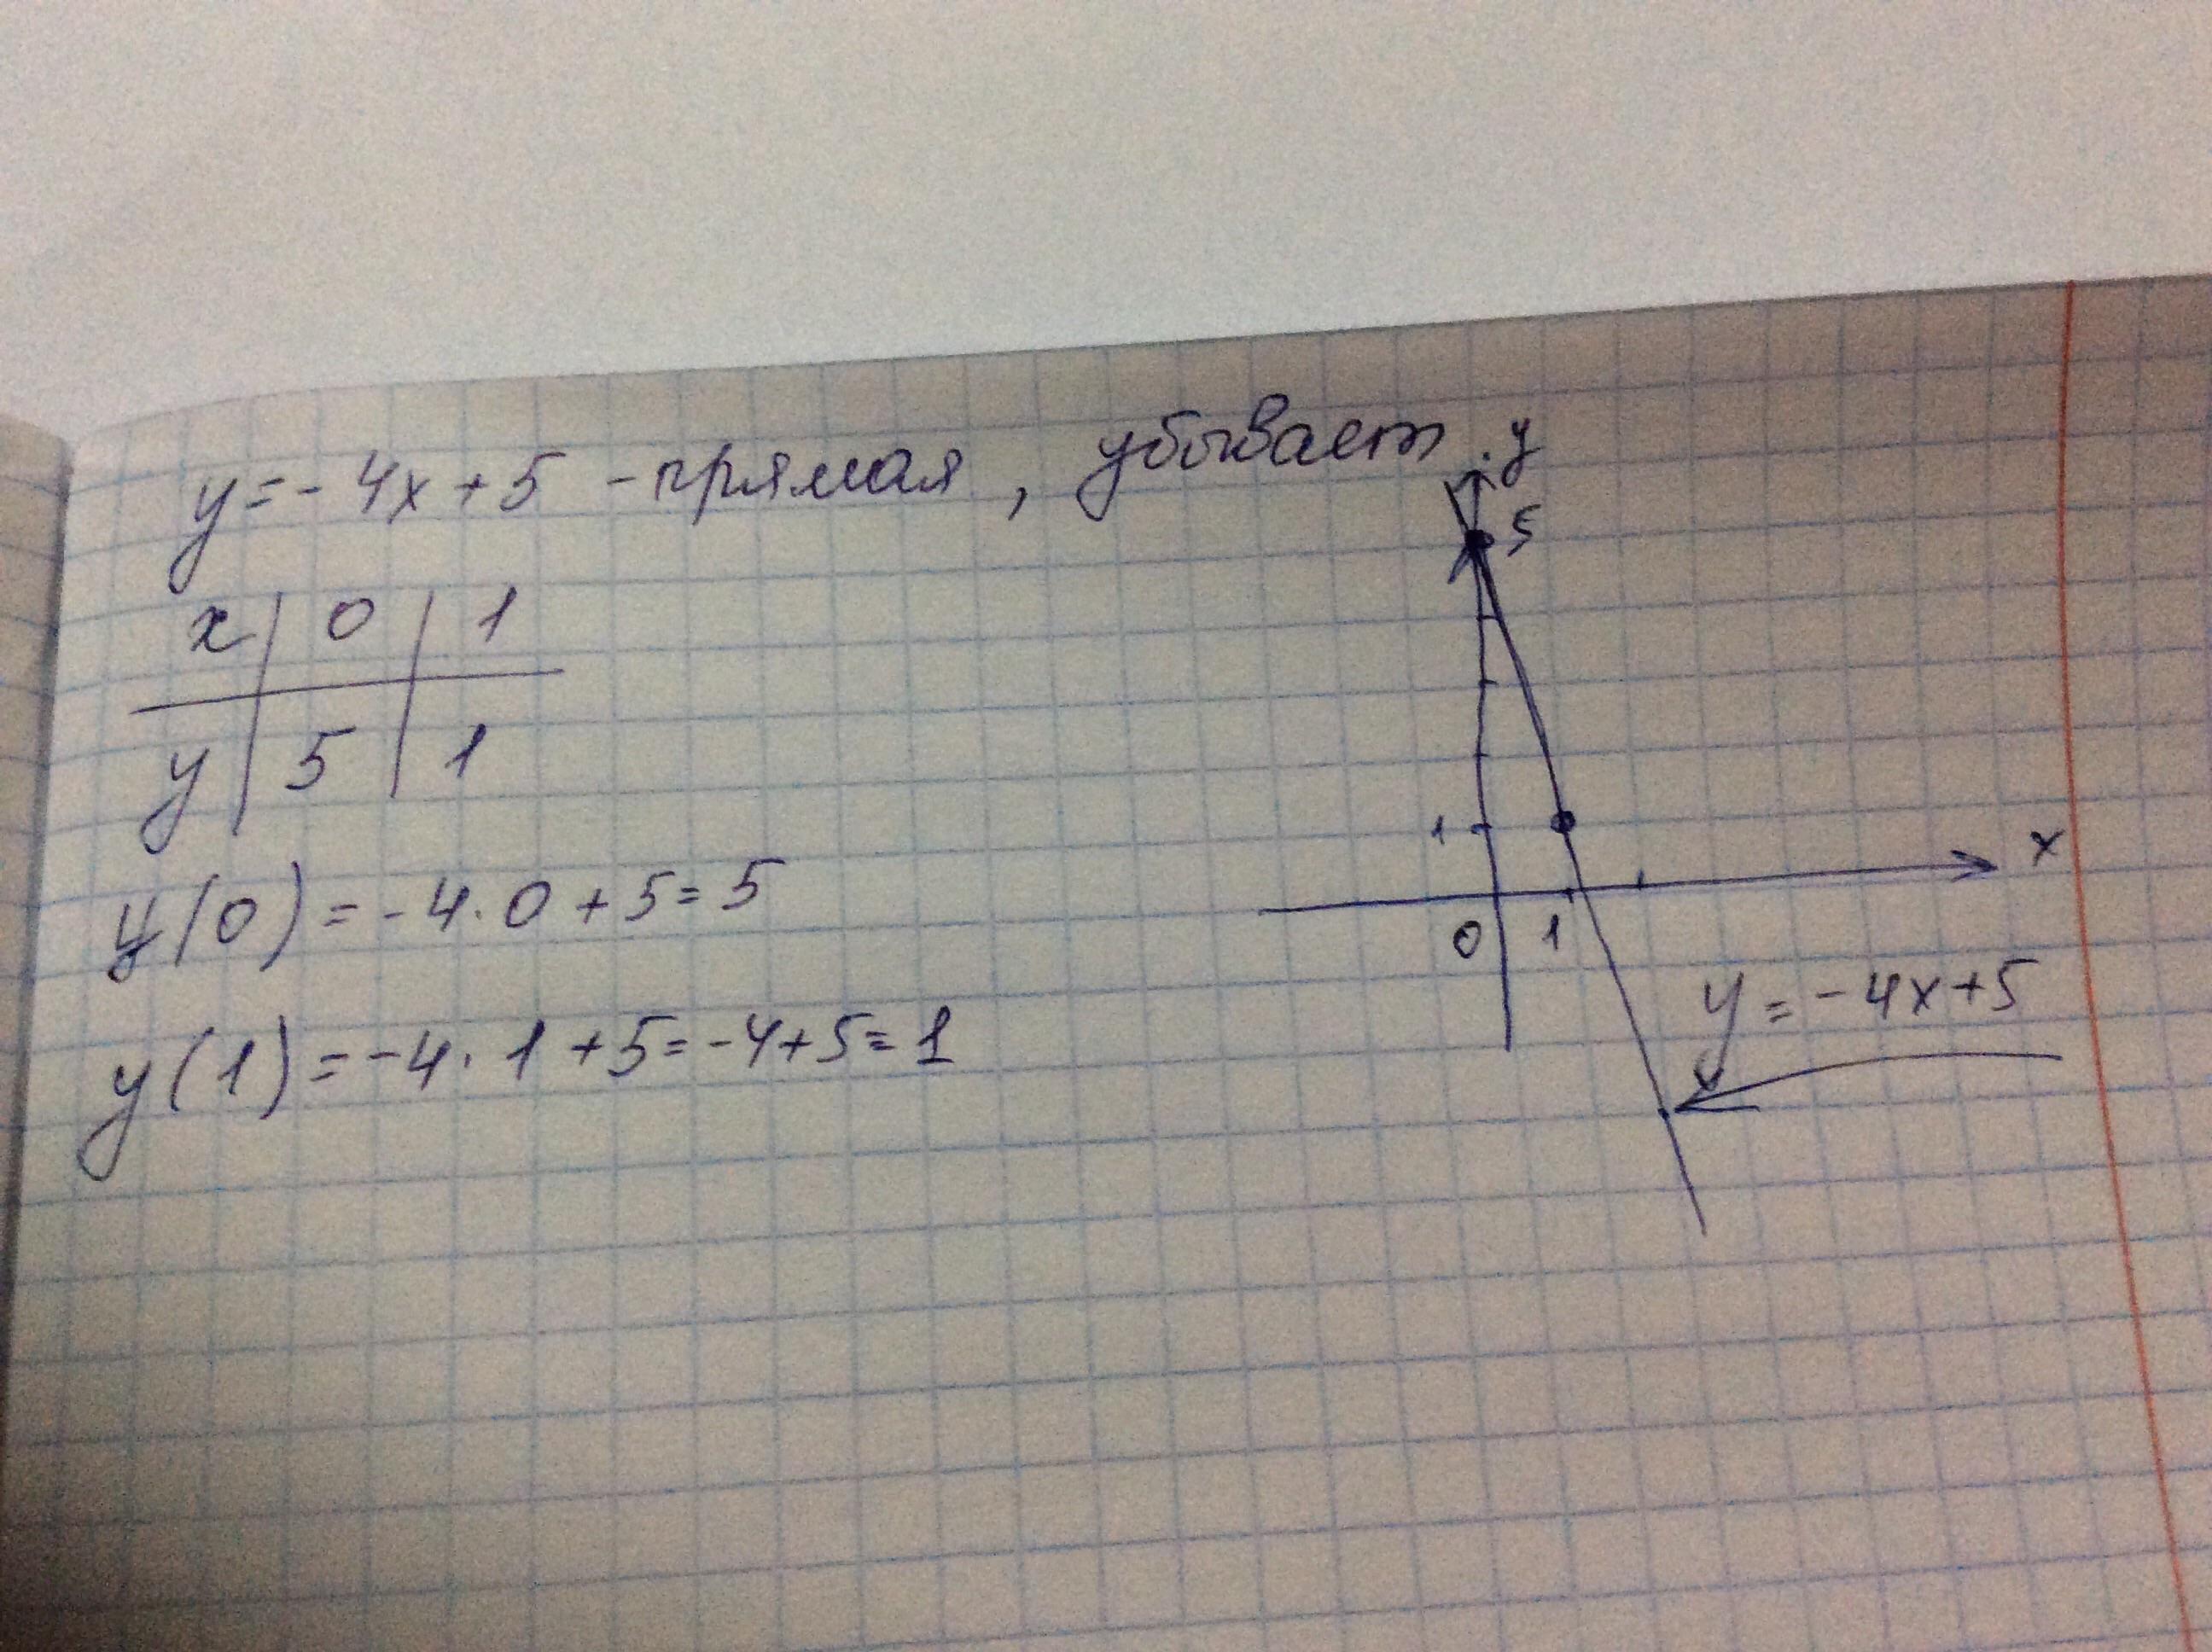 y = -4x + 5 - прямая, убывает.
x | 0 | 1
y | 5 | 1
y(0) = -4·0 + 5 = 5
y(1) = -4·1 + 5 = -4 + 5 = 1
y
5
1
x
0 1
y = -4x + 5